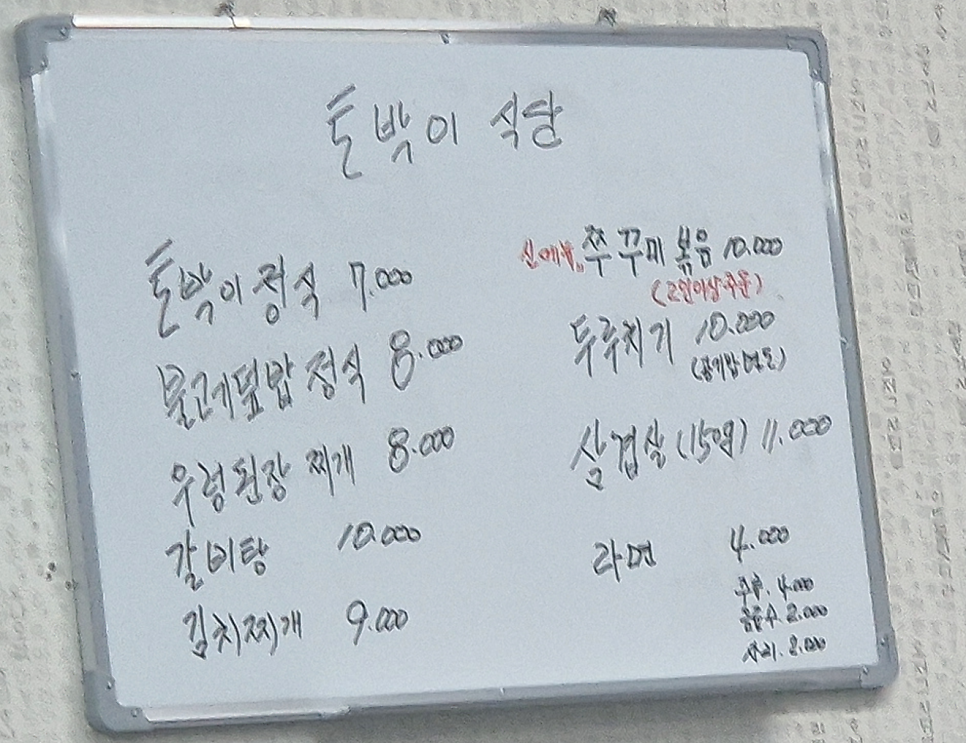 톤박이 식단
톤박이 정식 7.000
물고래덮밥 정식 8.000
우렁된장 찌개 8.000
갈비탕 10.000
김치찌개 9.000
쭈꾸미 볶음 10.000
(2인이상주문)
두루치기 10.000
(공기밥별도)
삼겹살 (150g) 11.000
라면 4.000
주류. 4.000
음료수. 2.000
사리. 2.000